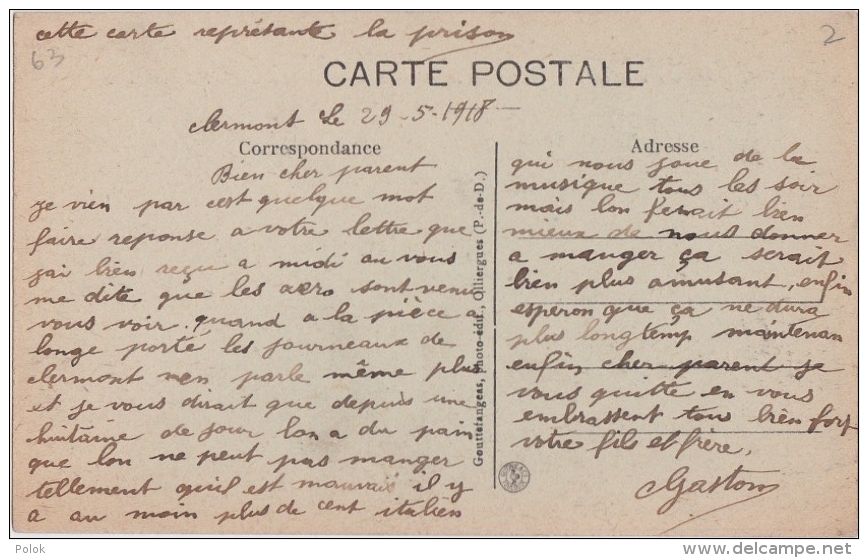 cette carte représante la prison
63
2
CARTE POSTALE
clermont le 29-5-1918-
Correspondance
Bien cher parent
je vien par cest quelque mot
faire reponse a votre lettre que
jai bien reçu a midi au vous
me dite que les aero sont venu
vous voir. quand a la pièce a
longe porte les journeaux de
clermont nen parle même plus
et je vous dirait que depuis une
huitaine de jour lon a du pain
que lon ne peut pas manger
tellement quil est mauvais il y
a au moin plus de cent italien
Gouttefangeas, photo-édit., Olliergues (P.-de-D.)
Adresse
qui nous joue de la
musique tous les soir
mais lon ferait bien
mieux de nous donner
a manger ça serait
bien plus amusant, enfin
esperon que ça ne dura
plus longtemp maintenan
enfin cher parent je
vous quitte en vous
embrassent tous bien fort
votre fils et frère,
Gaston
Polok
www.delcampe.net